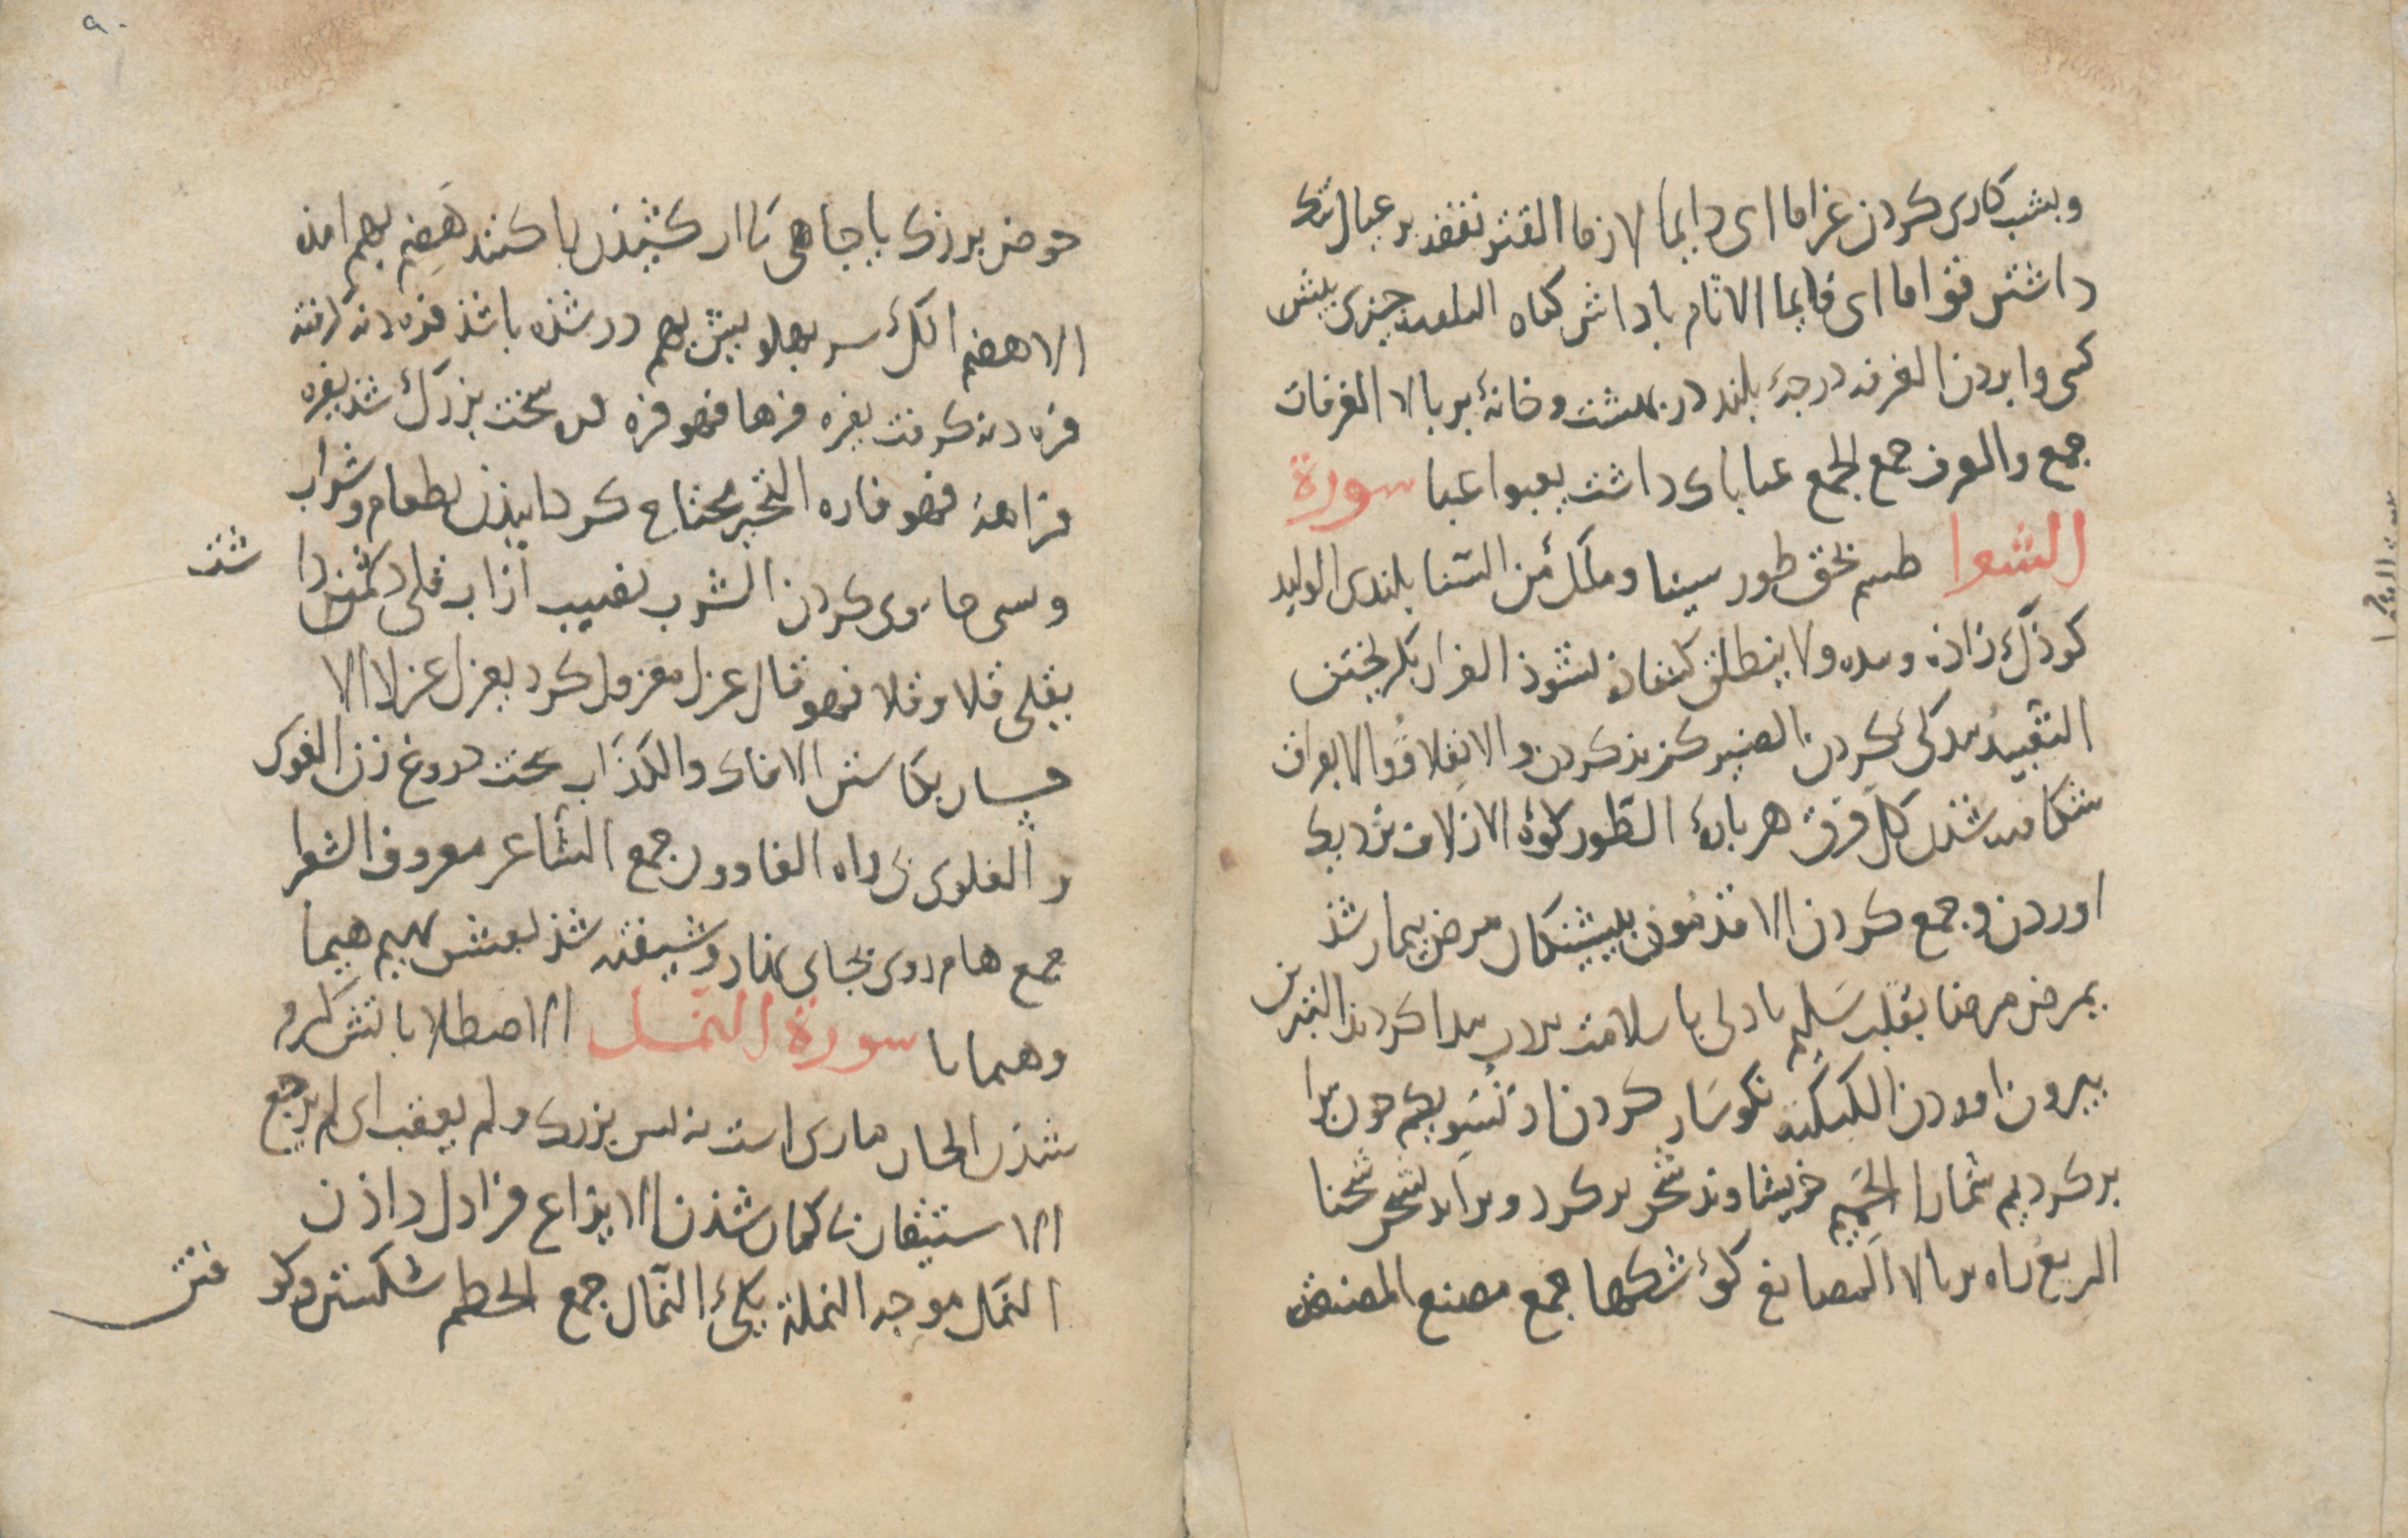 وبشب کاری کردن غراما ای دایما لازما القتر نفقه بر عیال تنک
داشتن قواما ای قایما الاثام باداش کناه چیزی پیش
کسی وا بردن الغرفه درجهٔ بلند در بهشت و خانهٔ بر بالا الغرفات
جمع والغرف جمع الجمع عبا باک داشت یعبوا عبا سورة
الشعرا طسم بحق طور سینا و الثنا بلندی الولید
کوذک زاذه ولا ینطلق کشاذه نشوذ الفرار بکریختن
التعبید کردن الضیر کزند کردن والانفلاق والانفراق
شکافته شذن کل فرق هر بارهٔ الطور کوه الازلاف نزدیک
اوردن و جمع کردن الاقدمون بیشینکان مرض بیمار شذ
یمرض مرضا بقلب سلیم با دلی با سلامت کردند التبریز
بیرون اوردن الکبکبه نکوسار کردن اذ نسویکم چون برا
بر کردیم شمارا الحمیم خویشاوند شحن بر کرد و براند یشحن شحنا
الریع راه بر بالا المصانع کوشکها جمع مصنع المصنعه
حوض بزرک یا جاهی تا اب کشیذن یا کنند هضیم بهم امذه
الاهضم انک سر بهلو بیش بهم در شذه باشذ فره دنه کرفته
فره دنه کرفت یفره فرها فهو فره سخت بزرک شذ یفره
فراهة فهو فاره التخییر محتاج کردانیذن بطعام وشراب
وسی جادوی کردن الشرب نصیب از اب قلی دشمن دا شت
یقلی قلا و قلا فهو قال عزل معزول کرد یعزل عزلا الا
الافاک والکذاب سخت دروغ زن الغوی
والغاوی بی راه الغاوون جمع الشاعر معروف الشعرا
جمع هام روی بجای نهاد و شیفته شذ بعشق یهیم هیما
وهیمانا سورة النمل الاصطلا باتش کرم
شذن الجان ماری است نه بس بزرک ولم یعقب ای لم یرجع
الاستیقان بی کمان شذن الایزاع فرا دل داذن
النمل موجه النملة یکی النمال جمع الحطم شکستن و کو فتن